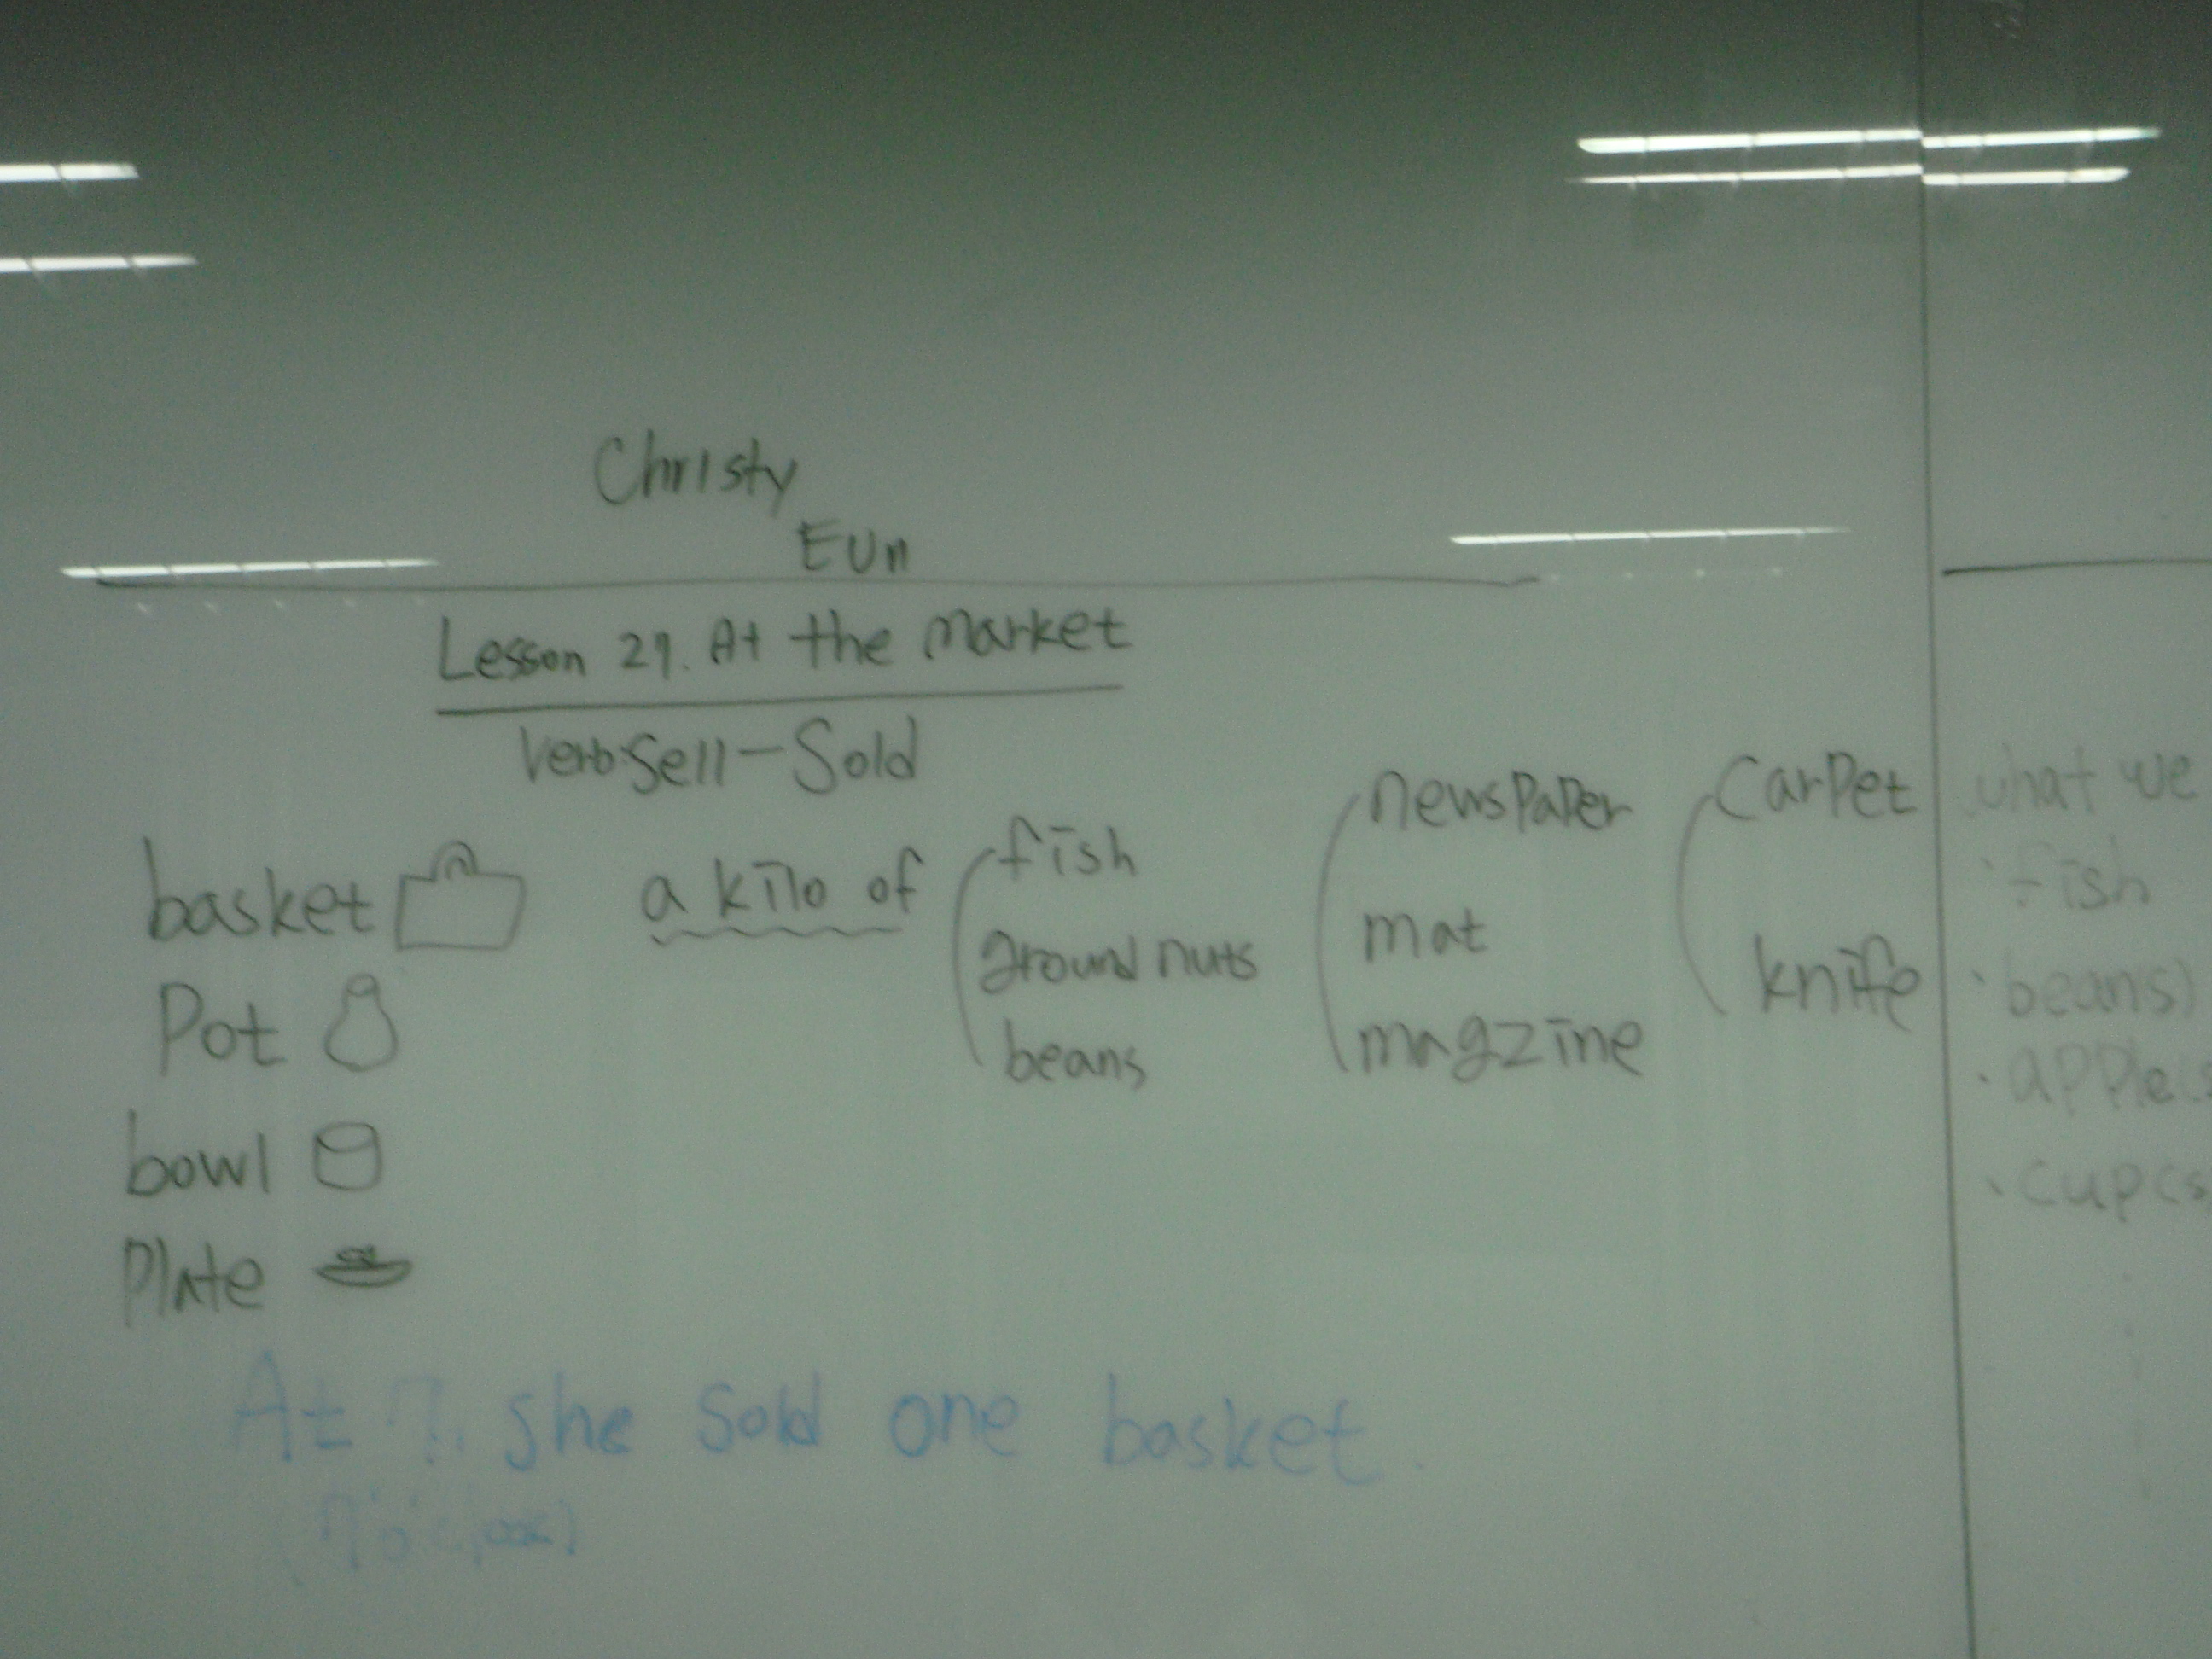 Christy
Eun
Lesson 29. At the market
Verb: Sell - Sold
basket
Pot
bowl
Plate
a kilo of
fish
ground nuts
beans
newspaper
mat
magzine
Carpet
knife
At 7. she sold one basket.
(7 o'clock)
what we
fish
beans)
apple(s
cup(s